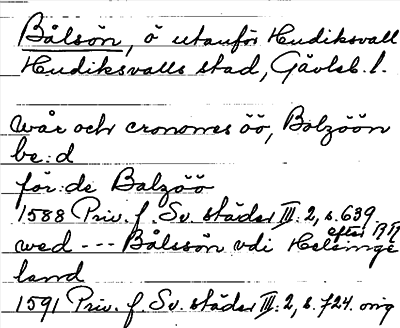 Bålsön, ö utanför Hudiksvall
Hudiksvalls stad, Gävleb. l.
wår och cronones öö, Bolzöön
be:d
för:de Balzöö
1588 Priv. f. Sv. städer III: 2, s. 639
efter RR
wed --- Bålssön vdi Helsinge
land
1591 Priv. f. Sv. städer III: 2, s. 724. orig